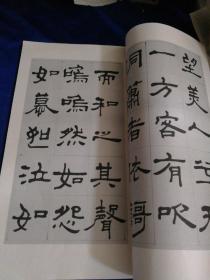 望美人兮天
一方客有吹
洞簫者依謌
而和之其聲
嗚嗚然如怨
如慕如泣如